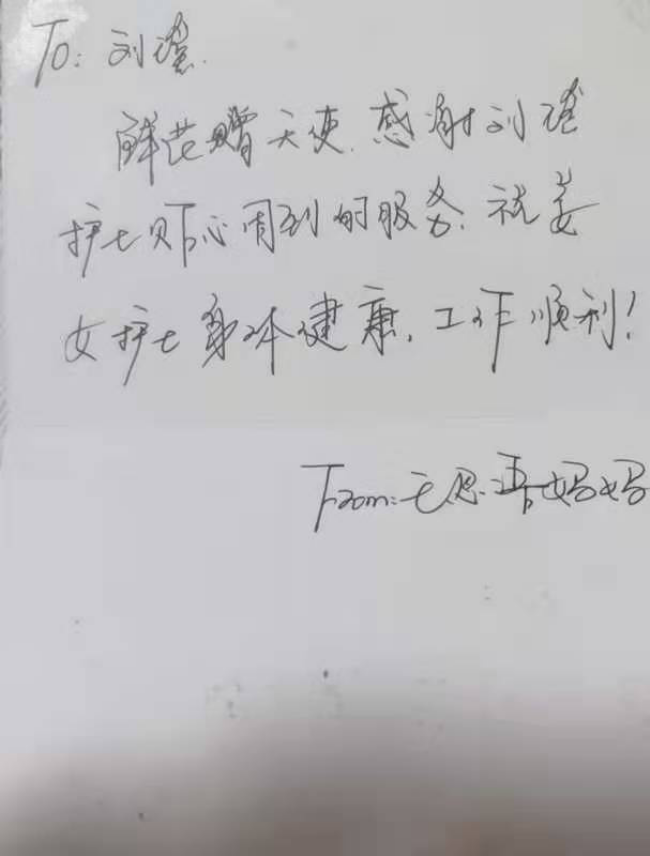 To: 刘
鲜花赠天使.感谢刘
护士贴心周到的服务.祝美
女护士身体健康,工作顺利!
From: 毛思 妈妈